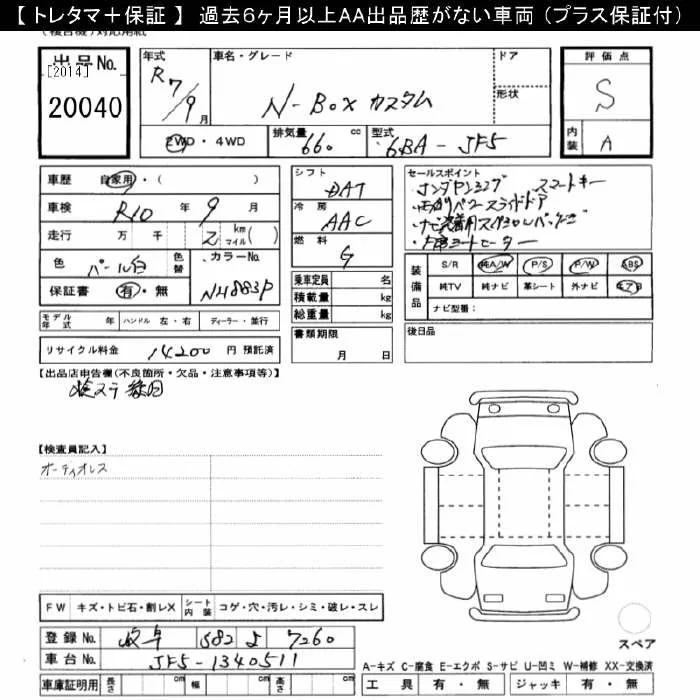 【 トレタマ＋保証 】 過去6ヶ月以上AA出品歴がない車両（プラス保証付）
出品No.
[2014]
20040
年式
R7/9月
車名・グレード
N-Box カスタム
ドア
形状
評価点
S
内装 A
2WD・4WD
排気量 660 cc
型式 6BA-JF5
車歴 自家用・( )
車検 R10 年 9 月
走行 万 千 2 km マイル( )
色 パール白 色替
カラーNo. NH883P
保証書 有・無
シフト DAT
冷房 AAC
燃料 G
乗車定員 名
積載量 kg
総重量 kg
書類期限
月 日
セールスポイント
・ホンダセンシング スマートキー
・両側パワースライドドア
・ナビ装着用スペシャルパッケージ
・シートヒーター
装備品
S/R 純A/W P/S P/W ABS
純TV 純ナビ 革シート 外ナビ エアB
ナビ型番：
後日品
モデル年式 年 ハンドル 左・右 ディーラー・並行
リサイクル料金 14200 円 預託済
【出品店申告欄(不良箇所・欠品・注意事項等)】
検ステ
【検査員記入】
オーディオレス
FW キズ・トビ石・割レX シート内装 コゲ・穴・汚レ・シミ・破レ・スレ
登録No. 岐阜 582 よ 7260
車台No. JF5-1340511
車庫証明用 長さ cm 幅 cm 高さ cm
スペア
A-キズ C-腐食 E-エクボ S-サビ U-凹ミ W-補修 XX-交換済
工具 有・無 ジャッキ 有・無